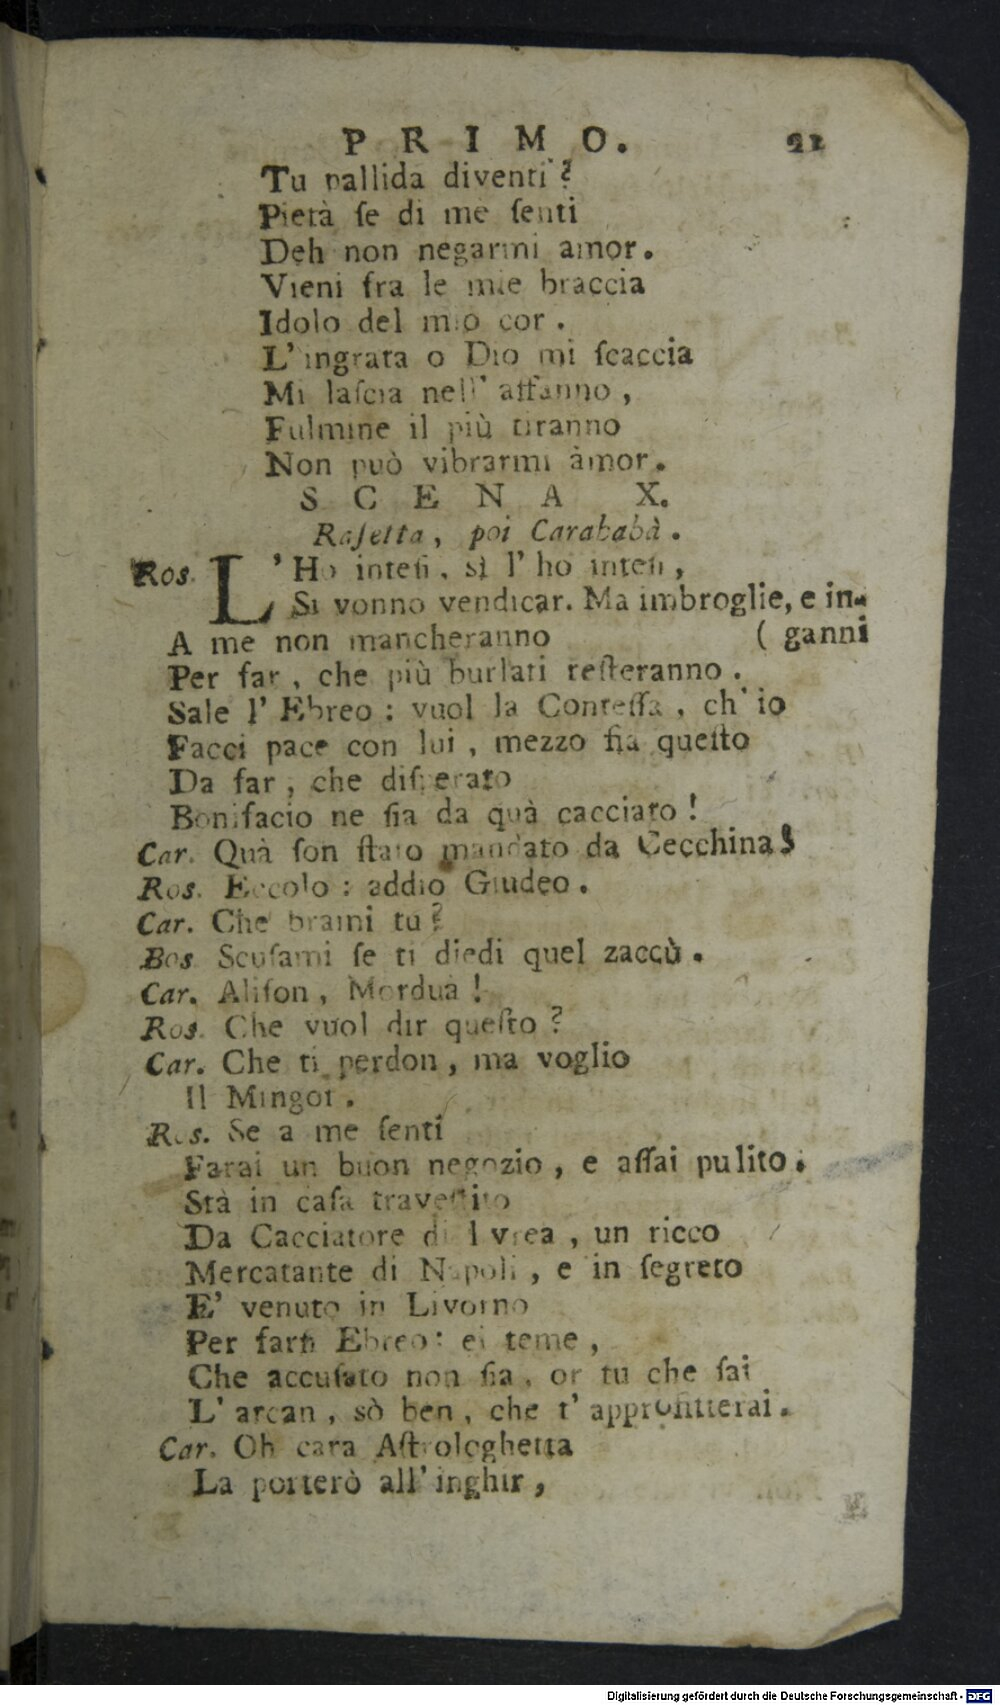 PRIMO. 21
Tu pallida diventi?
Pietà ſe di me ſenti
Deh non negarmi amor.
Vieni fra le mie braccia
Idolo del mio cor.
L' ingrata o Dio mi ſcaccia
Mi laſcia nell' affanno,
Fulmine il più tiranno
Non può vibrarmi àmor.
SCENA X.
Roſetta, poi Carababà.
Ros. L' Ho inteſi, sì l' ho inteſi,
Si vonno vendicar. Ma imbroglie, e in-
A me non mancheranno (ganni
Per far, che più burlati reſteranno.
Sale l' Ebreo: vuol la Conteſſa, ch' io
Facci pace con lui, mezzo ſia queſto
Da far, che diſperato
Bonifacio ne ſia da quà cacciato!
Car. Quà ſon ſtato mandato da Cecchina!
Ros. Eccolo: addio Giudeo.
Car. Che brami tu?
Bos. Scuſami ſe ti diedi quel zaccù.
Car. Aliſon, Morduà!
Ros. Che vuol dir queſto?
Car. Che ti perdon, ma voglio
Il Mingoi.
Ros. Se a me ſenti
Farai un buon negozio, e aſſai pulito.
Stà in caſa traveſtito
Da Cacciatore di Ivrea, un ricco
Mercatante di Napoli, e in ſegreto
E' venuto in Livorno
Per farſi Ebreo: ei teme,
Che accuſato non ſia, or tu che ſai
L' arcan, sò ben, che t' approfitterai.
Car. Oh cara Aſtrologhetta
La porterò all' inghir,
Digitalisierung gefördert durch die Deutsche Forschungsgemeinschaft - DFG